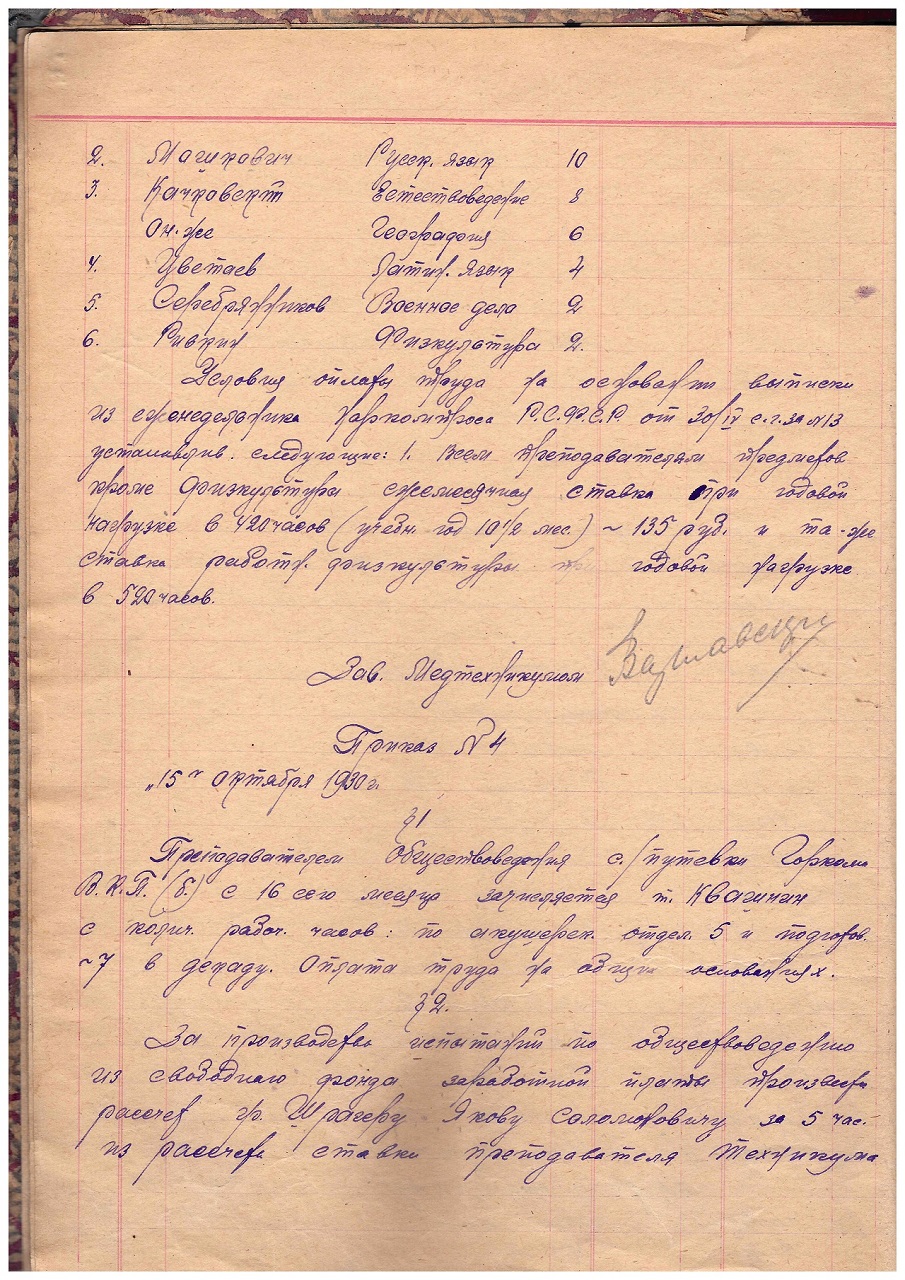 2. Магикович Русск. язык 10
3. Качковскт Естествоведение 8
Он-же География 6
4. Цветаев Латин. язык 4
5. Серебрянников Военное дела 2
6. Ривкин Физкультура 2.
Условия оплаты труда на основании выписки
из еженедельника Наркомпроса Р.С.Ф.С.Р. от 30/IV с.г. за №13
устанавлив. следующие: 1. Всем преподавателям предметов
кроме физкультуры ежемесячная ставка при годовой
нагрузке в 420 часов (учебн. год 10 1/2 мес.) ~ 135 руб. и та-же
ставка работн. физкультуры годовой нагрузке
в 520 часов.
Зав. Медтехникумом
Приказ №4
„15" октября 1930 г.
§1
Преподавателем Обществоведения с./путевки Горкома
В.К.П.(б.) с 16 сего месяца зачисляется т. Квагинин
с колич. рабоч. часов: по акушерск. отдел. 5 и подготов.
~7 в декаду. Оплата труда на общих основаниях.
§2.
За производство испытаний по обществоведению
из свободного фонда заработной платы произвести
рассчет гр. Шрагеру Якову Соломоновичу за 5 час.
из рассчета ставки преподавателя Техникума